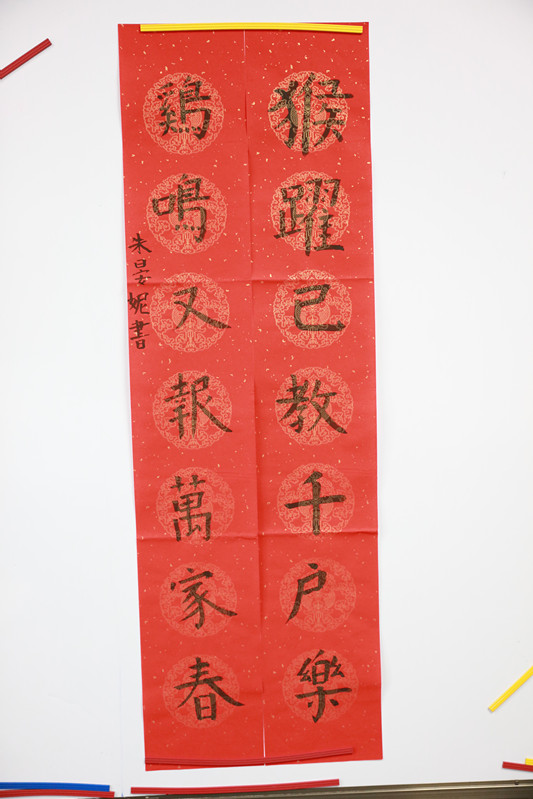 猴躍己教千户樂
鷄鳴又報萬家春
朱晏妮書